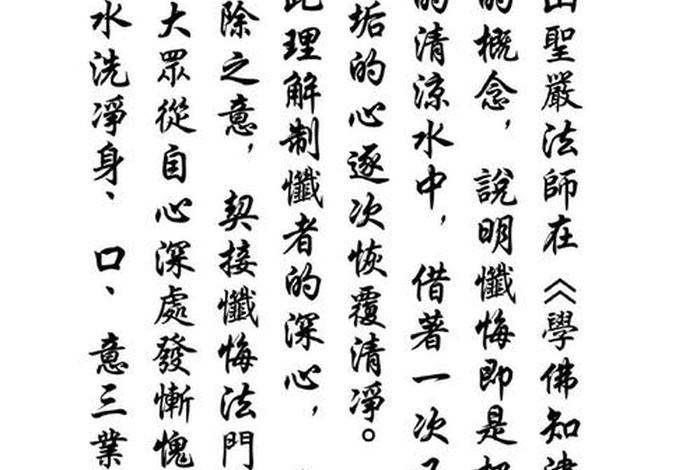 聖嚴法師在《學佛知津
的概念，說明懺悔即是把
的清涼水中，借著一次
垢的心逐次恢覆清凈。
此理解制懺者的深心，
除之意，契接懺悔法門
大眾從自心深處發慚愧
水洗凈身、口、意三業